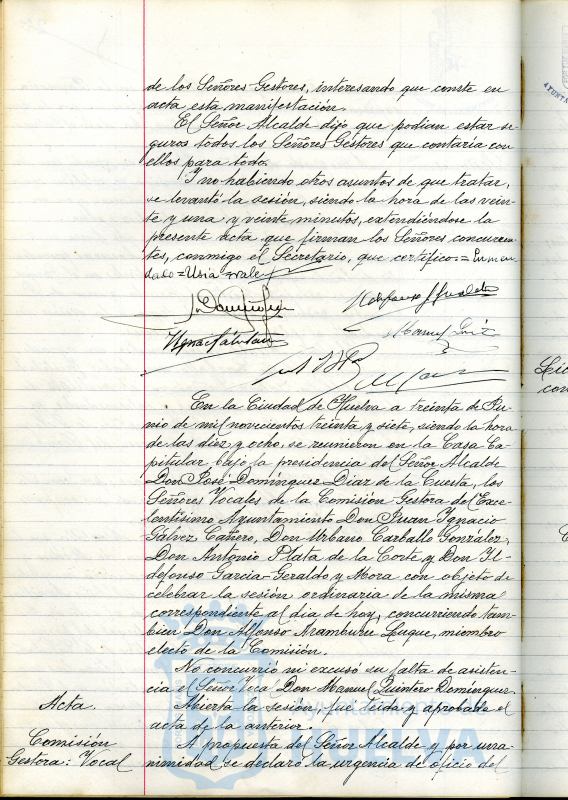 de los Señores Gestores, interesando que conste en
acta esta manifestación.
El Señor Alcalde dijo que podian estar se
guros todos los Señores Gestores que contaria con
ellos para todo.
Y no habiendo otros asuntos de que tratar,
se levantó la sesión, siendo la hora de las vein-
te y una y veinte minutos, extendiéndose la
presente acta que firman los Señores concurren-
tes, conmigo el Secretario, que certifico.=Enmen-
dado=Usia=vale
En la Ciudad de Huelva a treinta de Ju-
nio de mil novecientos treinta y siete, siendo la hora
de las diez y ocho, se reunieron en la Casa Ca-
pitular bajo la presidencia del Señor Alcalde
Don José Dominguez Diaz de la Cuesta, los
Señores Vocales de la Comisión Gestora del Exce-
lentisimo Ayuntamiento Don Juan Ignacio
Gálvez Cañero, Don Urbano Carballo Gonzalez,
Don Antonio Plata de la Corte y Don Il-
defonso Garcia-Geraldo y Mora con objeto de
celebrar la sesión ordinaria de la misma
correspondiente al dia de hoy, concurriendo tam-
bien Don Alfonso Aramburu Luque, miembro
electo de la Comisión.
No concurrió ni excusó su falta de asisten-
cia el Señor Vocal Don Manuel Quintero Dominguez.
Acta.
Abierta la sesión fué leida y aprobada el
acta de la anterior.
Comisión
Gestora: Vocal
A propuesta del Señor Alcalde y por una-
nimidad se declaró la urgencia de oficio del